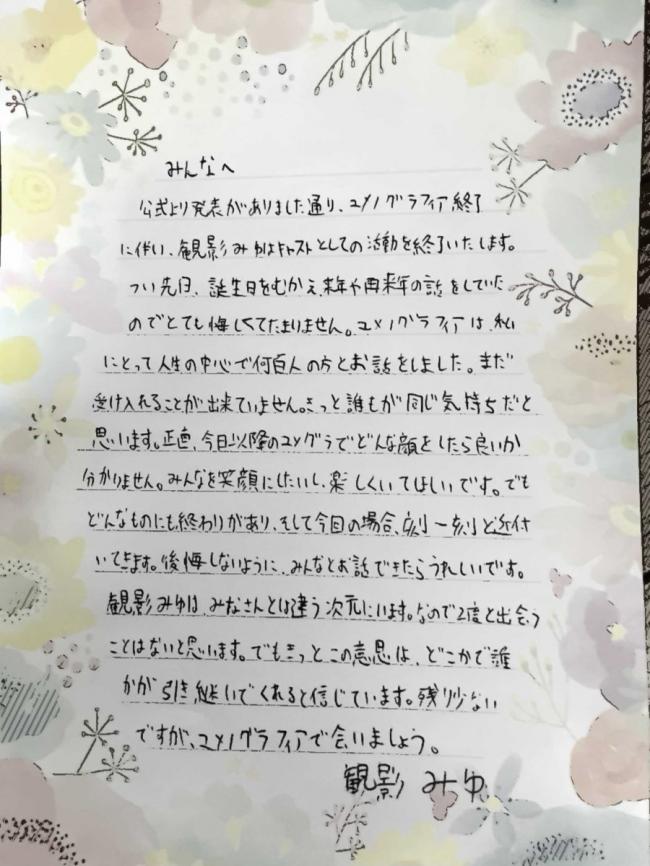 みんなへ
公式より発表がありました通り、ユメノグラフィア終了
に伴い、観影みゆはキャストとしての活動を終了いたします。
つい先日、誕生日をむかえ、来年や再来年の話をしていた
のでとても悔しくてたまりません。ユメノグラフィアは、私
にとって人生の中心で何百人の方とお話をしました。まだ
受け入れることが出来ていません。きっと誰もが同じ気持ちだと
思います。正直、今日以降のユメグラでどんな顔をしたら良いか
分かりません。みんなを笑顔にしたいし、楽しくいてほしいです。でも
どんなものにも終わりがあり、そして今回の場合、刻一刻と近付
いてきます。後悔しないように、みんなとお話できたらうれしいです。
観影みゆは、みなさんとは違う次元にいます。なので2度と出会う
ことはないと思います。でもきっとこの意思は、どこかで誰
かが引き継いでくれると信じています。残り少ない
ですが、ユメノグラフィアで会いましょう。
観影 みゆ